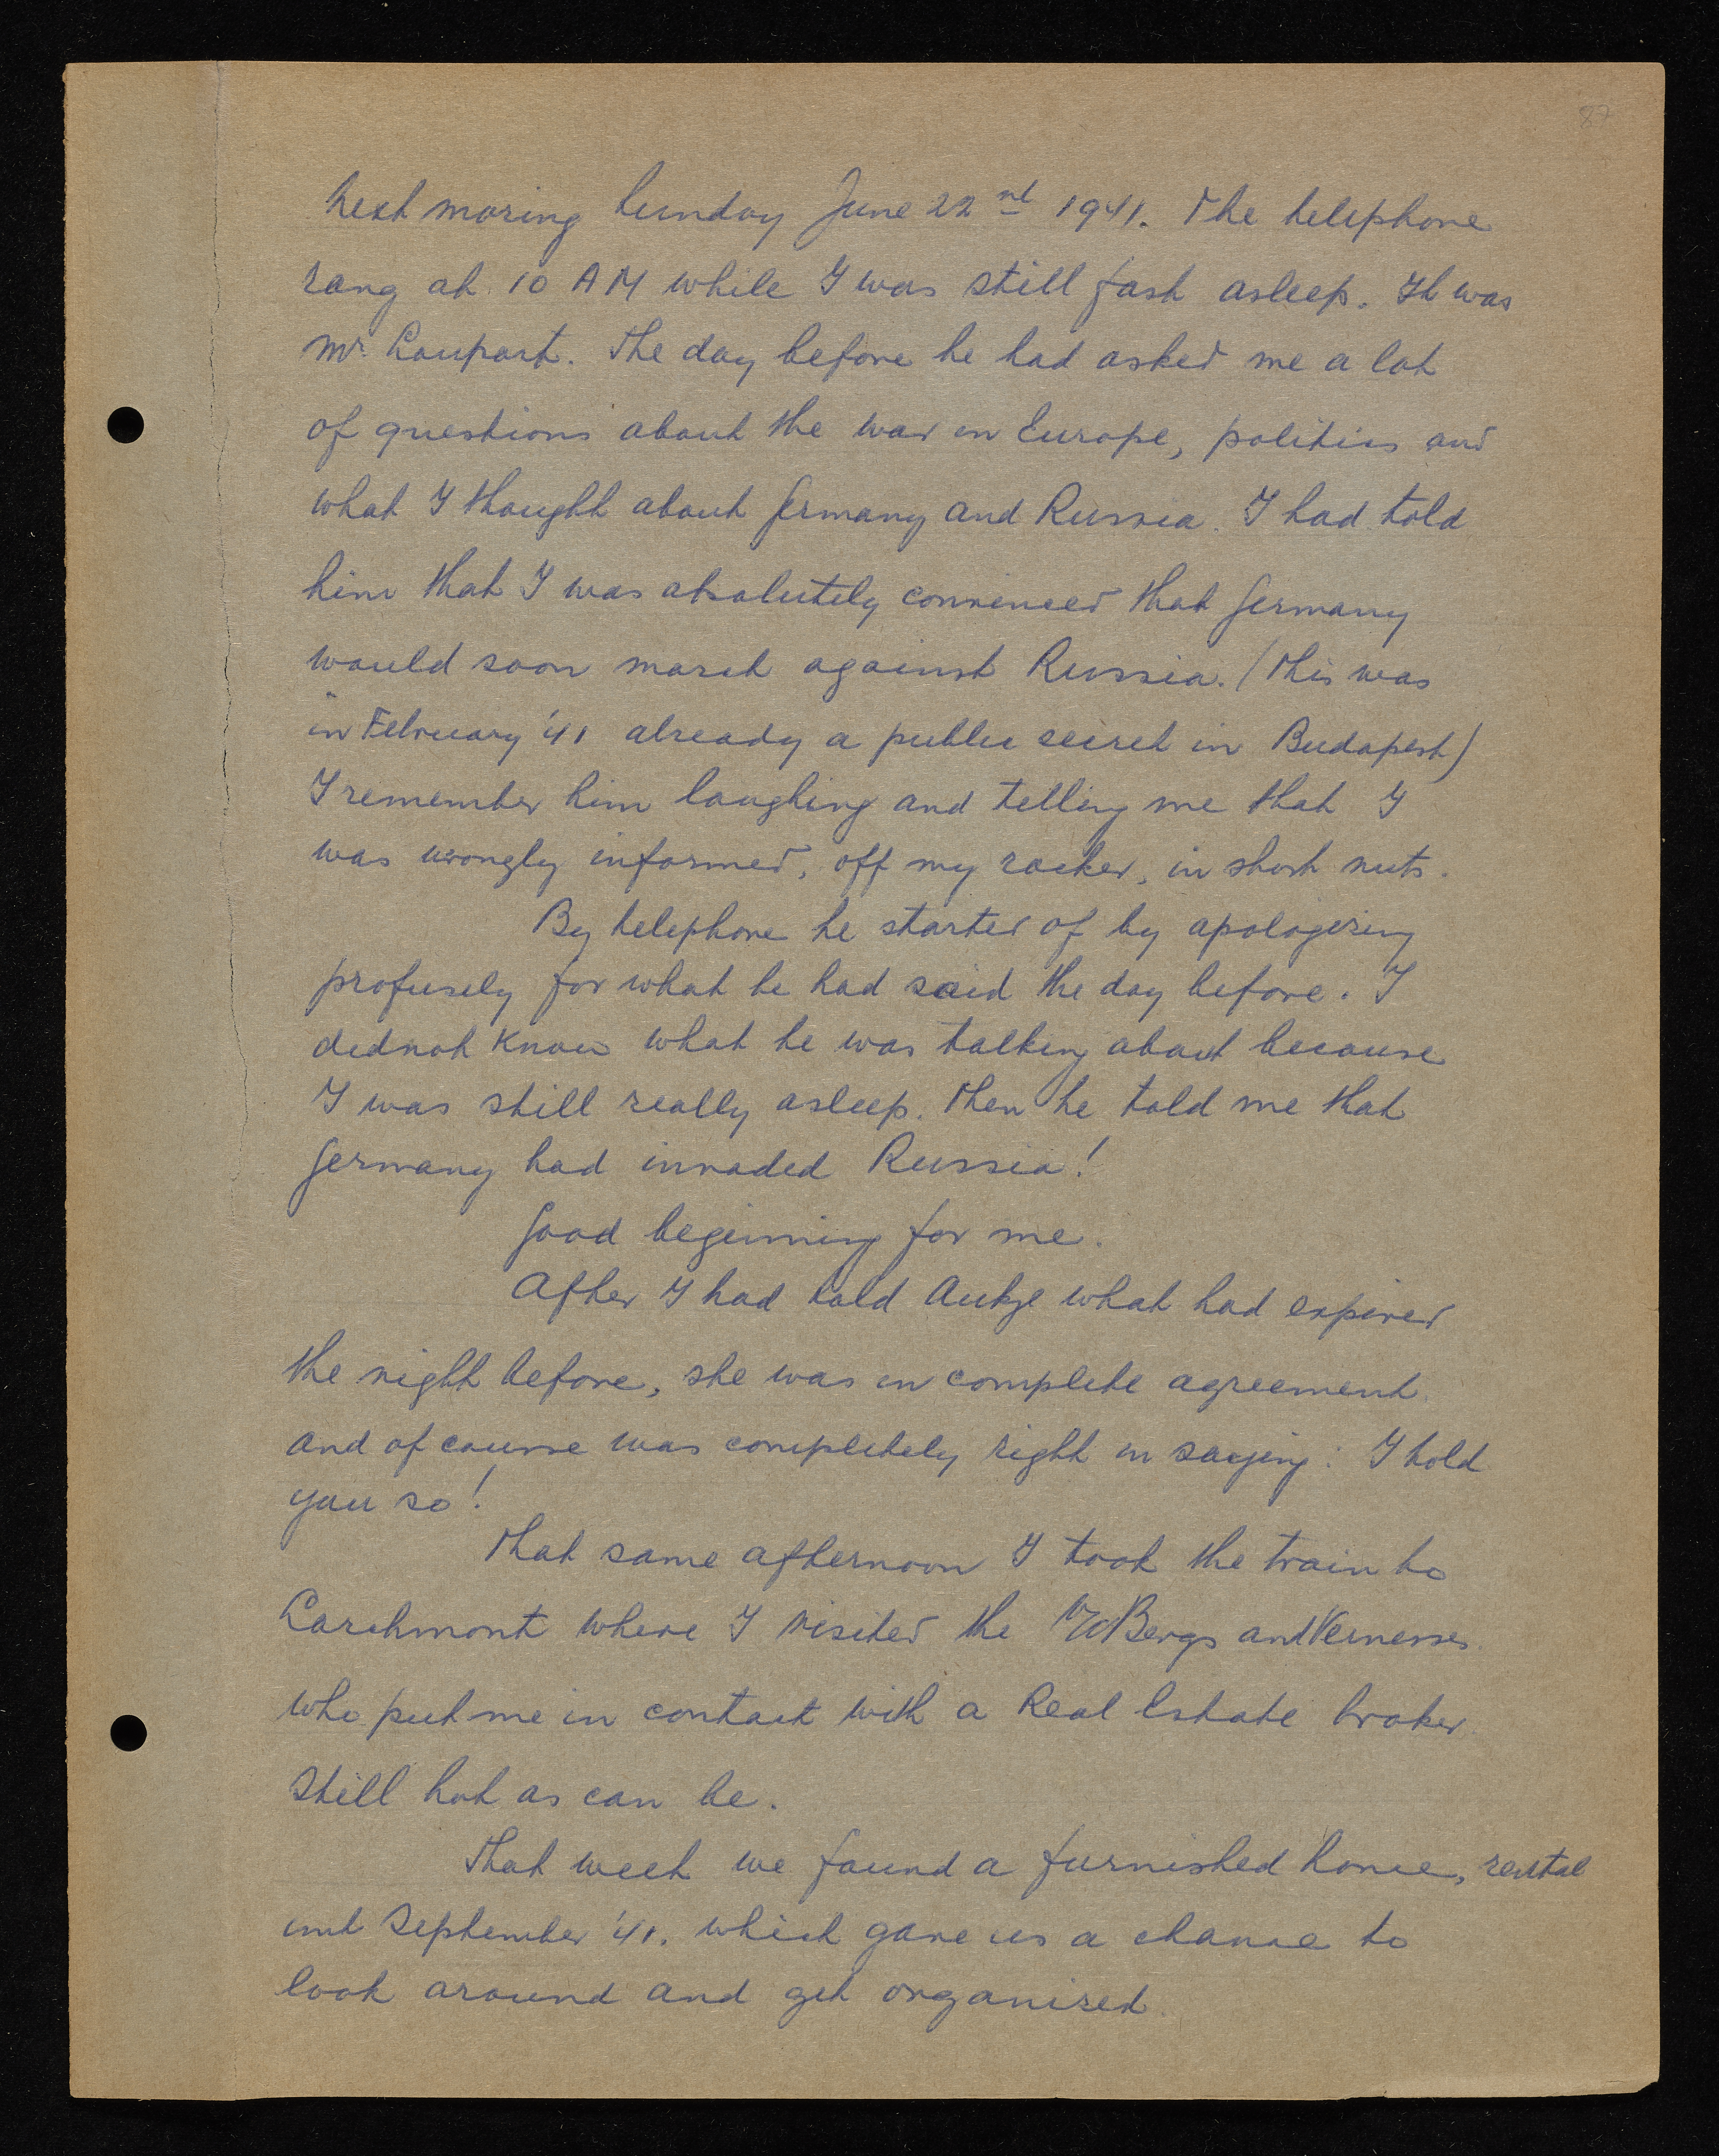 87
Next moring Sunday June 22nd 1941. The telephone
rang at 10 AM while I was still fast asleep. It was
Mr. Loupart. The day before he had asked me a lot
of questions about the war in Europe, politics and
what I thought about Germany and Russia. I had told
him that I was absolutely convinced that Germany
would soon march against Russia. (This was
in February '41 already a public secret in Budapest)
I remember him laughing and telling me that I
was wrongly informed, off my rocker, in short nuts.
By telephone he started of by apologizing
profusely for what he had said the day before. I
did not know what he was talking about because
I was still really asleep. Then he told me that
Germany had invaded Russia!
Good beginning for me.
After I had told Aukje what had expired
the night before, she was in complete agreement
and of course was completely right in saying: I told
you so!
That same afternoon I took the train to
Larchmont where I visited the vdBergs and
who put me in contact with a Real Estate broker
Still hot as can be.
That week we found a furnished home, rental
until September '41. which gave us a chance to
look around and get organized.